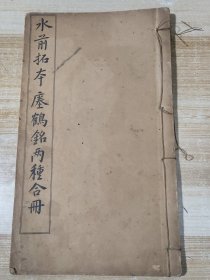 水前拓本廛鶴銘兩種合冊